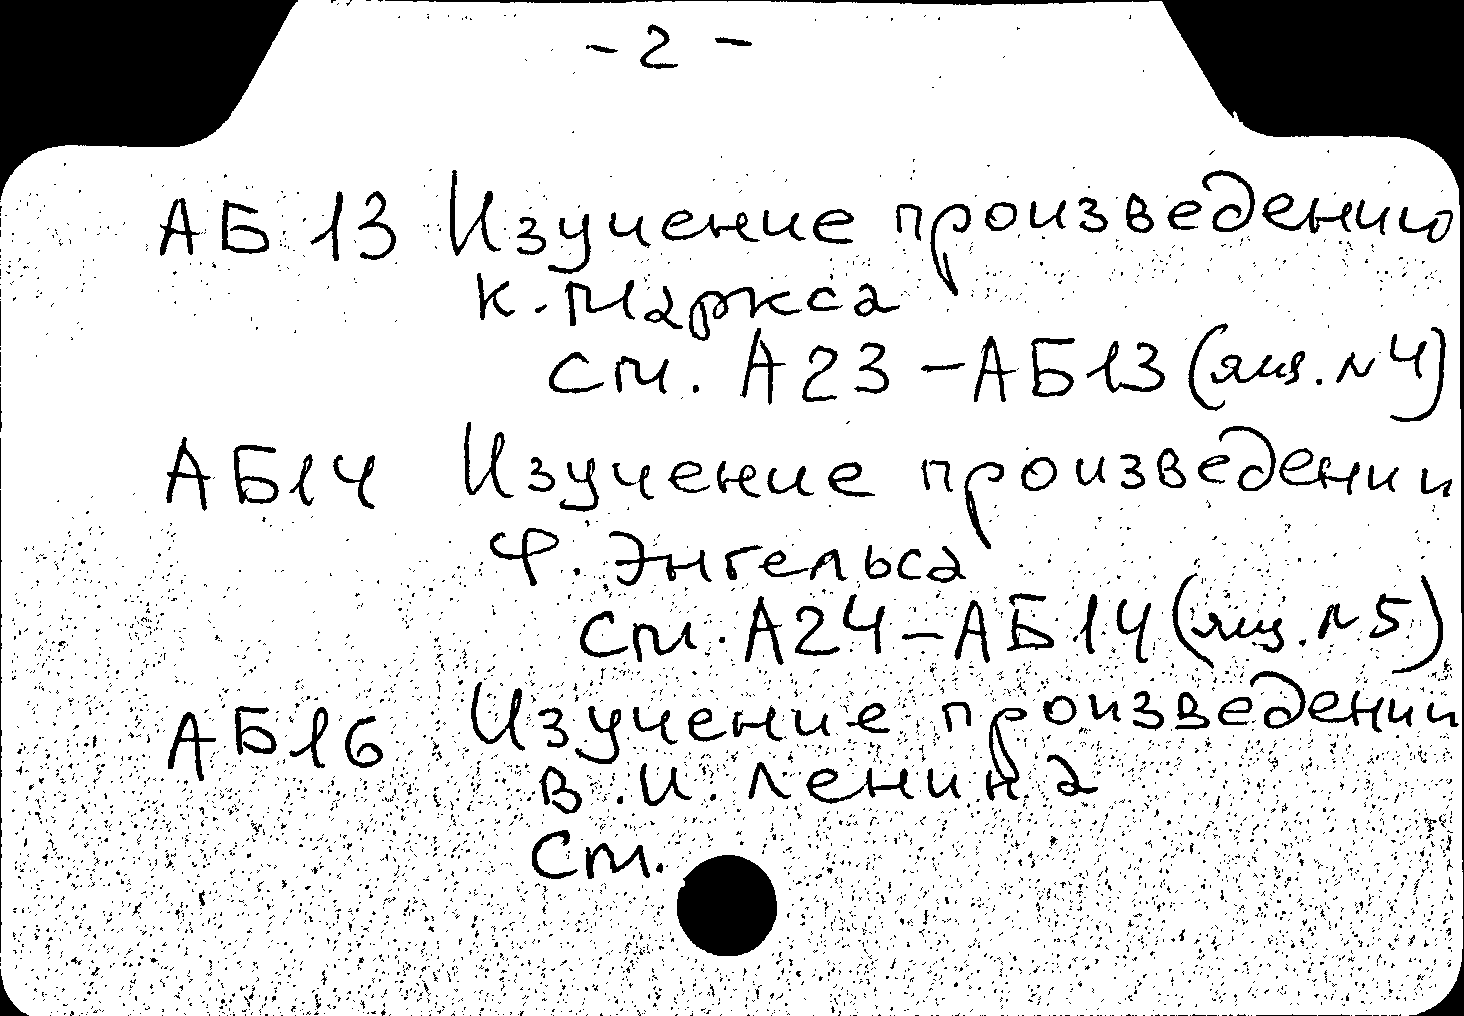 - 2 -
АБ 13 Изучение произведению
К. Маркса
см. А23 - АБ13 (ящ. N 4)
АБ14 Изучение произведении
Ф. Энгельса
см. А24 - АБ14 (ящ. N 5)
АБ16 Изучение произведении
В. И. Ленина
см.